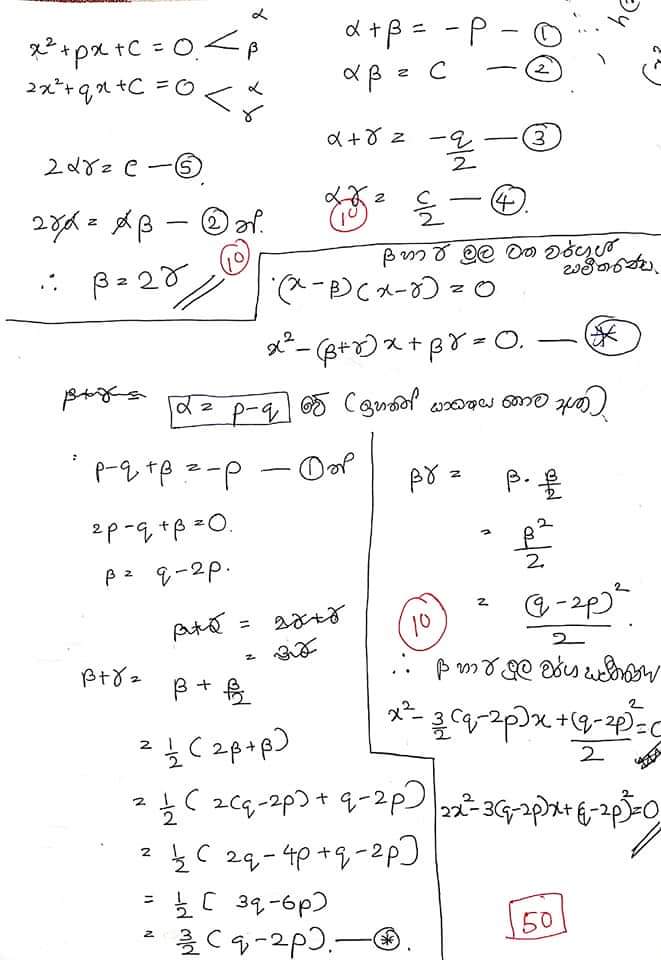 x²+px+c = 0. < α β
2x²+qx+c = 0 < α γ
α+β = -p - ①
αβ = c - ②
α+γ = -q/2 - ③
αγ = c/2 - ④
10
2αγ = c - ⑤
2γα = αβ - ② න්.
∴ β = 2γ
10
β හා γ මූල වන වර්ගජ සමීකරණය.
(x-β)(x-γ) = 0
x²-(β+γ)x+βγ = 0. - ⊛
β+γ =
α = p-q වේ (ඉහතින් සාධනය කොට ඇත)
p-q+β = -p - ① න්
2p-q+β = 0.
β = q-2p.
β+γ = 2γ+γ
= 3γ
β+γ = β + β/2
= 1/2 (2β+β)
= 1/2 (2(q-2p) + q-2p)
= 1/2 (2q-4p+q-2p)
= 1/2 [3q-6p)
= 3/2 (q-2p). - ⊛.
βγ = β · β/2
= β²/2
= (q-2p)²/2.
10
∴ β හා γ මූල වර්ගජ සමීකරණය
x²-3/2(q-2p)x+(q-2p)²/2=0
2x²-3(q-2p)x+(q-2p)²=0
50